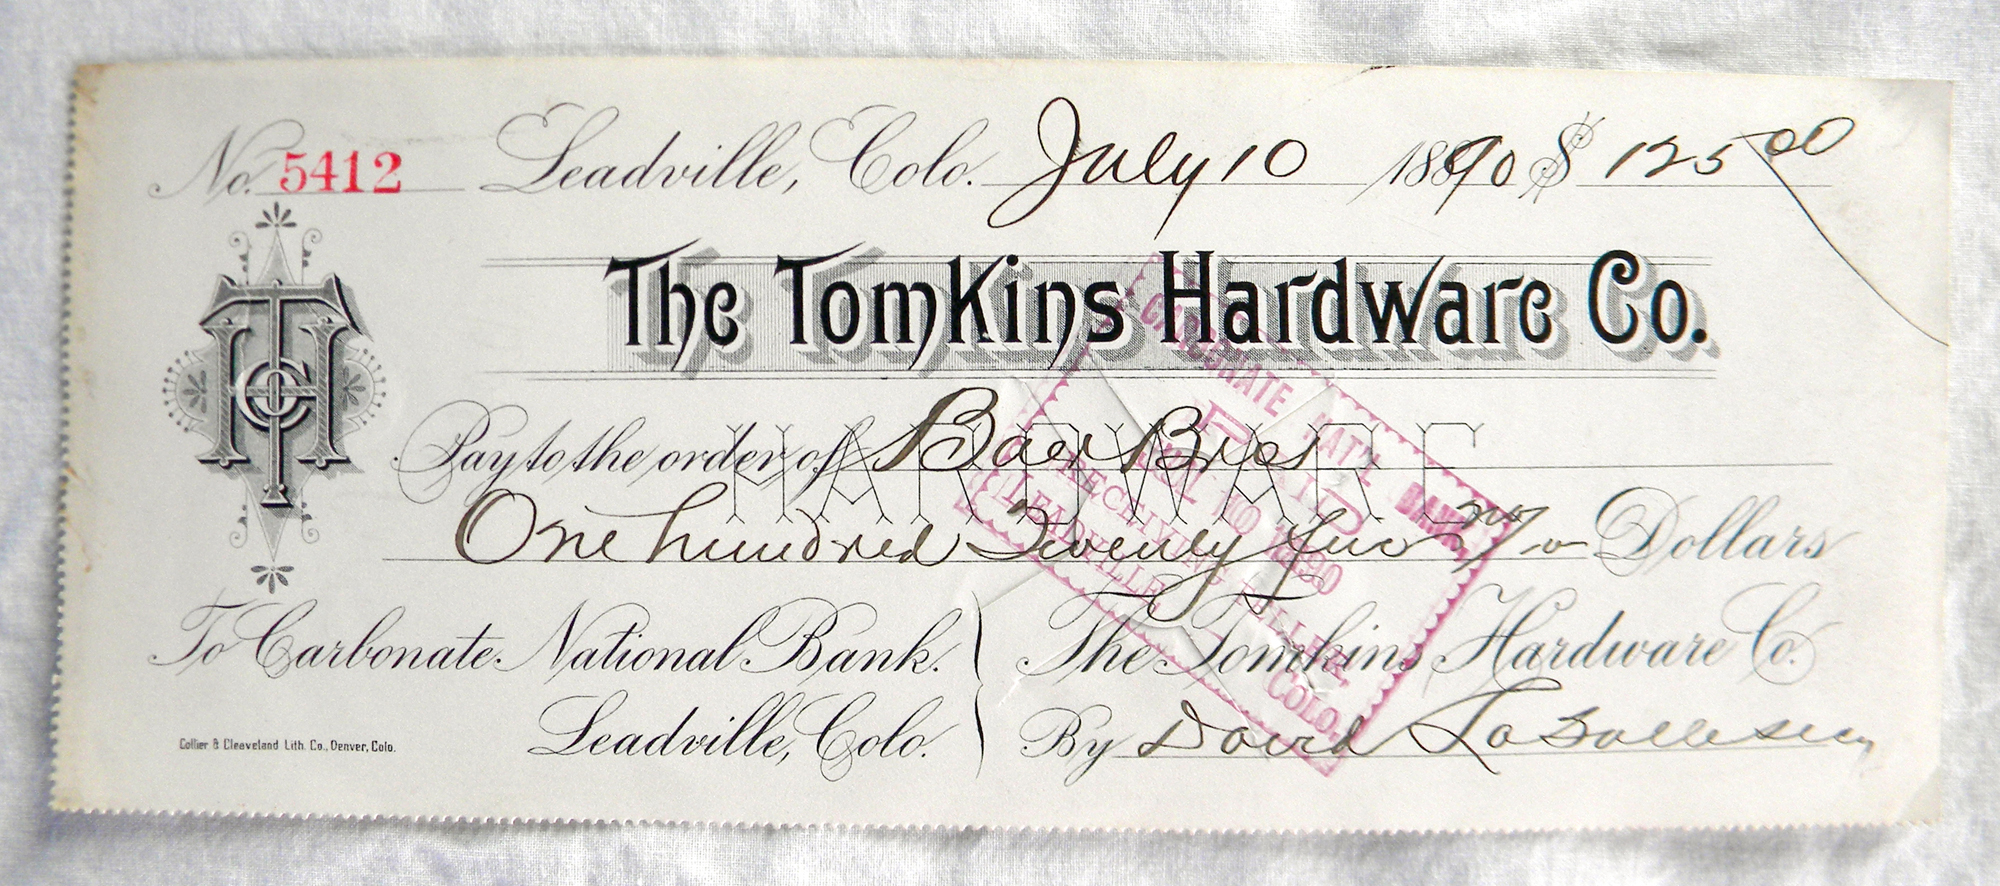 No. 5412 Leadville, Colo. July 10 1890 $ 125 00
The Tomkins Hardware Co.
THCo
Pay to the order of Baer Bros
HARDWARE
One hundred Twenty five no/ Dollars
CARBONATE NAT'L BANK
PAID
JUL 10 1890
RECEIVING TELLER,
LEADVILLE, COLO.
To Carbonate National Bank. The Tomkins Hardware Co.
Leadville, Colo. By David
Collier & Cleaveland Lith. Co., Denver, Colo.